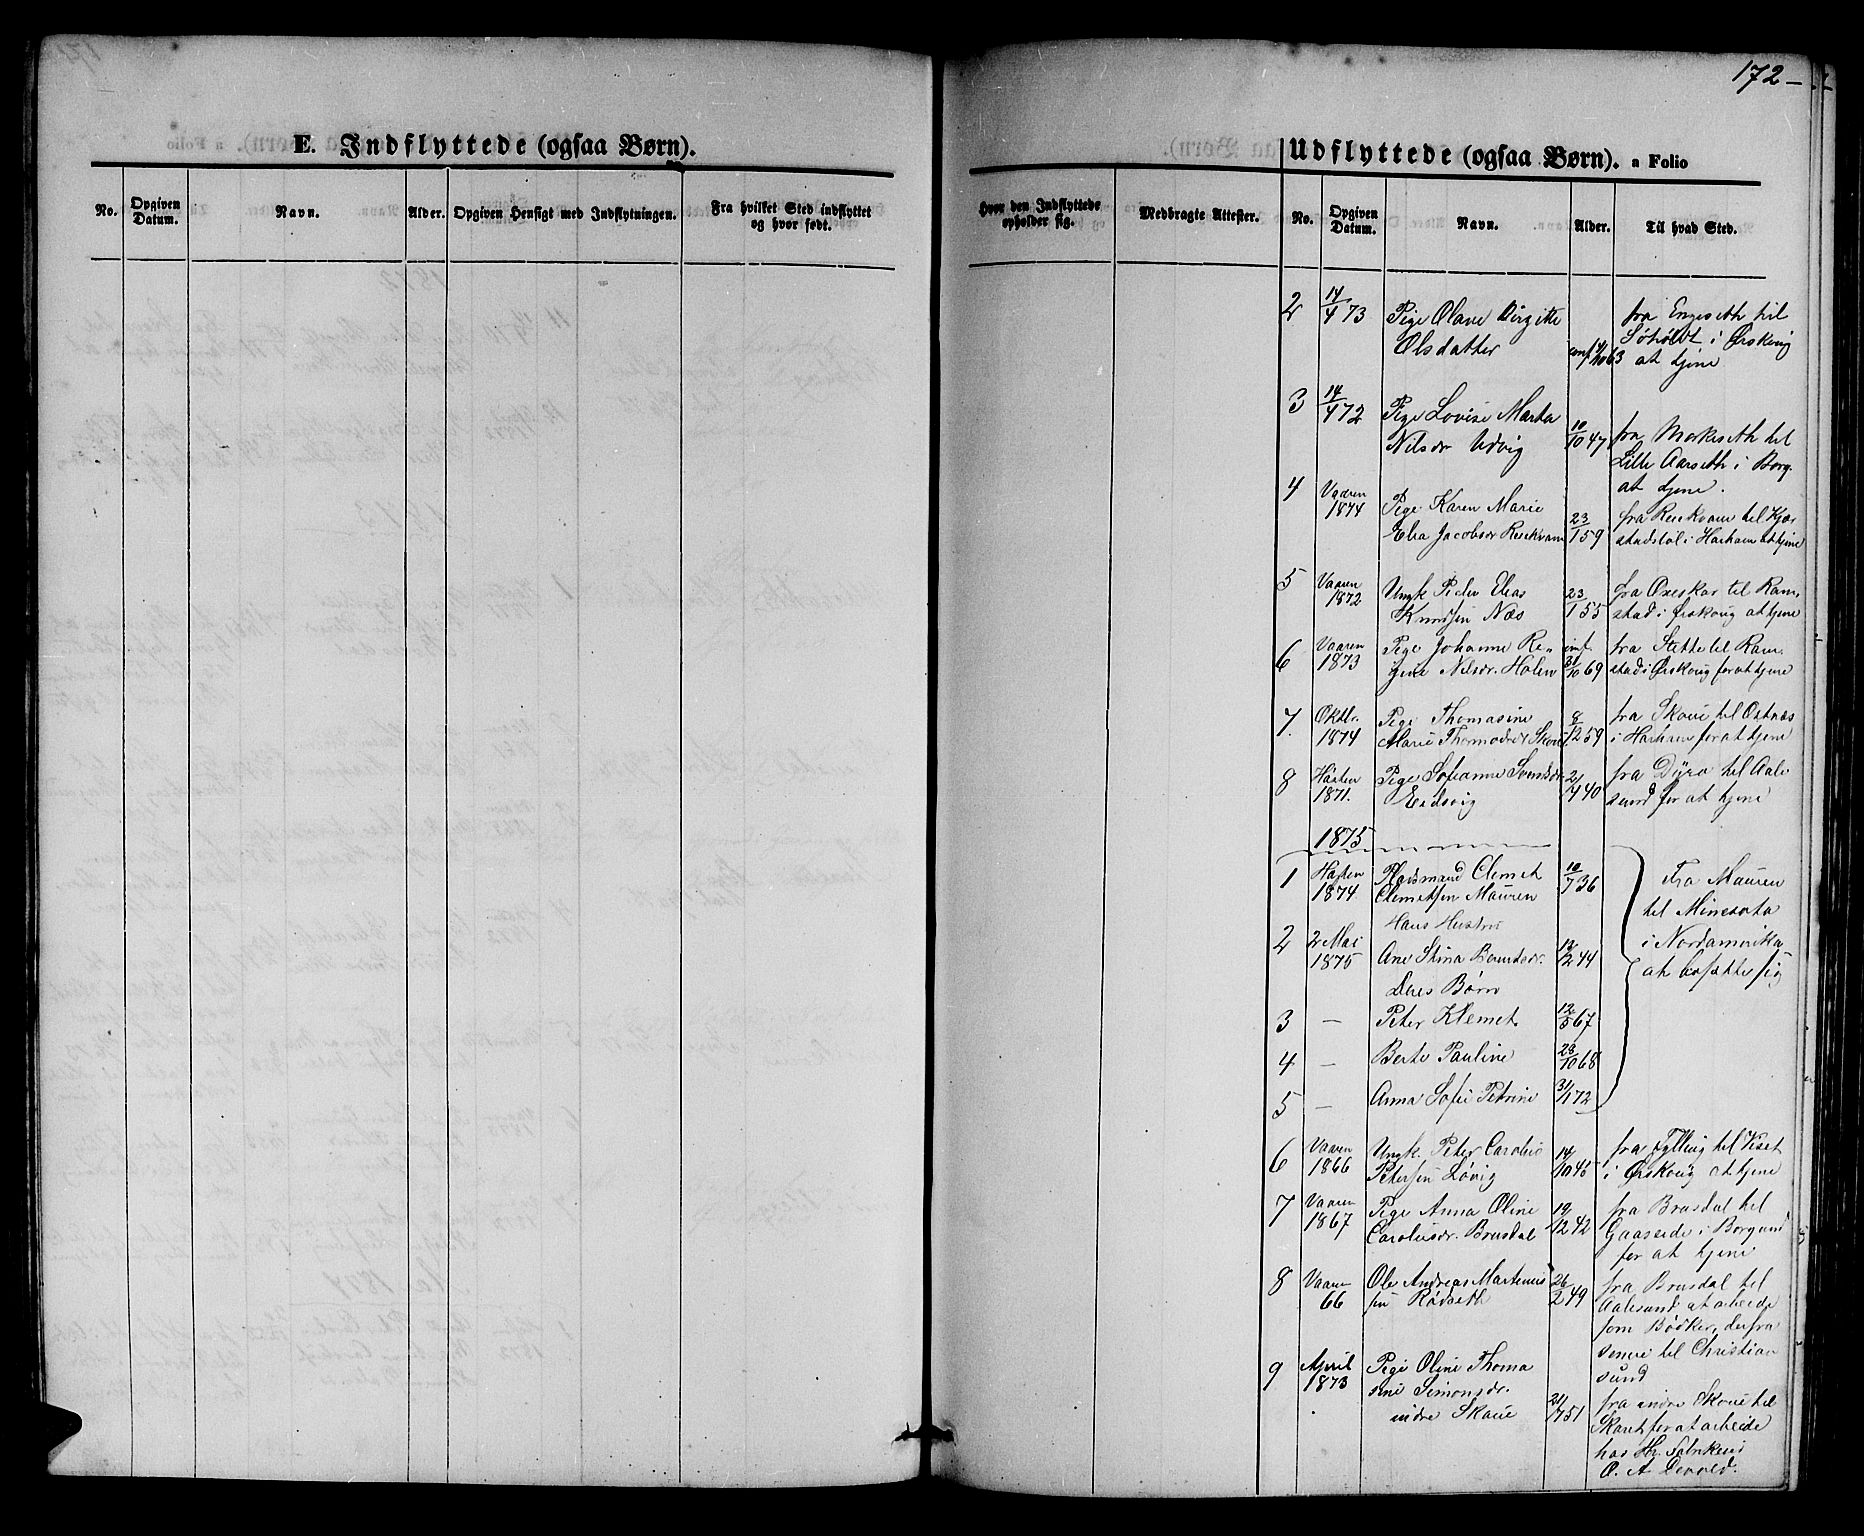 172
E. Indflyttede (ogsaa Børn).
No.
Opgiven Datum.
Navn.
Alder.
Opgiven Hensigt med Indflytningen.
Fra hvilket Sted indflyttet og hvor født.
Hvor den Indflyttede opholder sig.
Medbragte Attester.
Udflyttede (ogsaa Børn). a Folio
No.
Opgiven Datum.
Navn.
Alder.
Til hvad Sted.
2 14/4 73 Pige Olave Birgitte fra Engeseth til
Olsdatter conf 4/10 63 Søholdt i Ørskoug
at tjene
3 14/4 72 Pige Lovise Marta
Nilsdr Udvig 10/10 47 fra Morkeseth til
Lille Aarseth i Borg.
at tjene.
4 Vaaren 1874 Pige Karen Marie fra Resekvam til Kjær
Elea Jacobsdr Resekvam 23/1 59 stadstøl i Harham at tjene
5 Vaaren 1872 Ungk. Peder Elias 23/1 55 fra Oxeskar til Ram
Knudsen Næs stad i Ørskoug at tjene
6 Vaaren 1873 Pige Johanne Re- fra Stette til Ram
gine Nilsdr. Holen 31/10 69 stad i Ørskoug for at tjene
7. Oktbr. 1874 Pige Thomasine 8/12 59 fra Skoue til Østnæs
Marie Thormodsdr Skoue i Harham for at tjene
8 Høsten 1871. Pige Sofianne Svendsdr 2/4 40 fra Dyrø til Aale
Eidsvig sund for at tjene
1875
1 Høsten 1874 Pladsmand Clemet 10/7 36 Fra Mauren
Clemetsen Mauren til Minesota
Hans Hustru i Nordamerika
2 2 Mai 1875 Ane Stina Berntsdr. 12/2 44 at bosætte sig
Deres Børn
3 — Peter Klemet 12/5 67
4 — Berte Pauline 28/10 68
5 — Anna Sofie Petrine 31/1 72
6 Vaaren 1866 Ungk. Peter Carolus 14/10 45 fra Fylling til Viset
Petersen Løvig i Ørskoug at tjene
7 Vaaren 1867 Pige Anna Oline 19/12 42 fra Brusdal til
Carolusdr. Brusdal Gaaseide i Borgund
for at tjene
8 Vaaren 66 Ole Andreas Martinus 26/2 49 fra Brusdal til
sen Rødseth Aalesund at arbeide
som Bødker, derfra
senere til Christian
sund
9 April 1873 Pige Oline Thoma
sine Simonsdr. 21/7 51 fra indre Skoue til
indre Skoue for at arbeide
hos Hr. Fabrikeier
O. A. Devold.